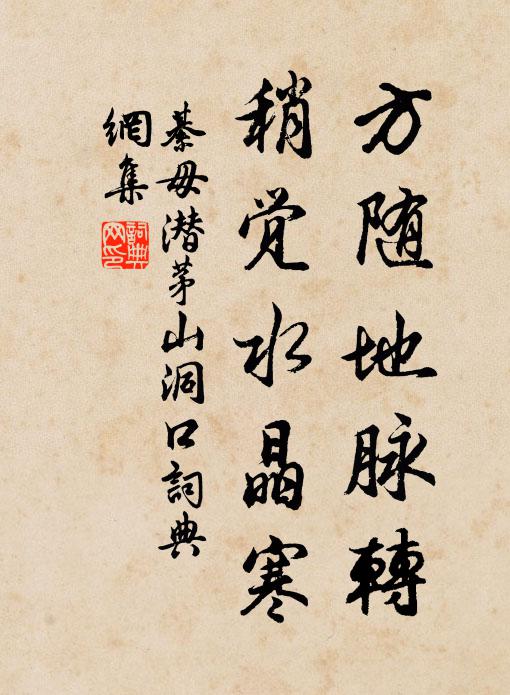 方随地脉轉
稍觉水晶寒
綦毋潜茅山洞口詞典
網集
詞典
网印